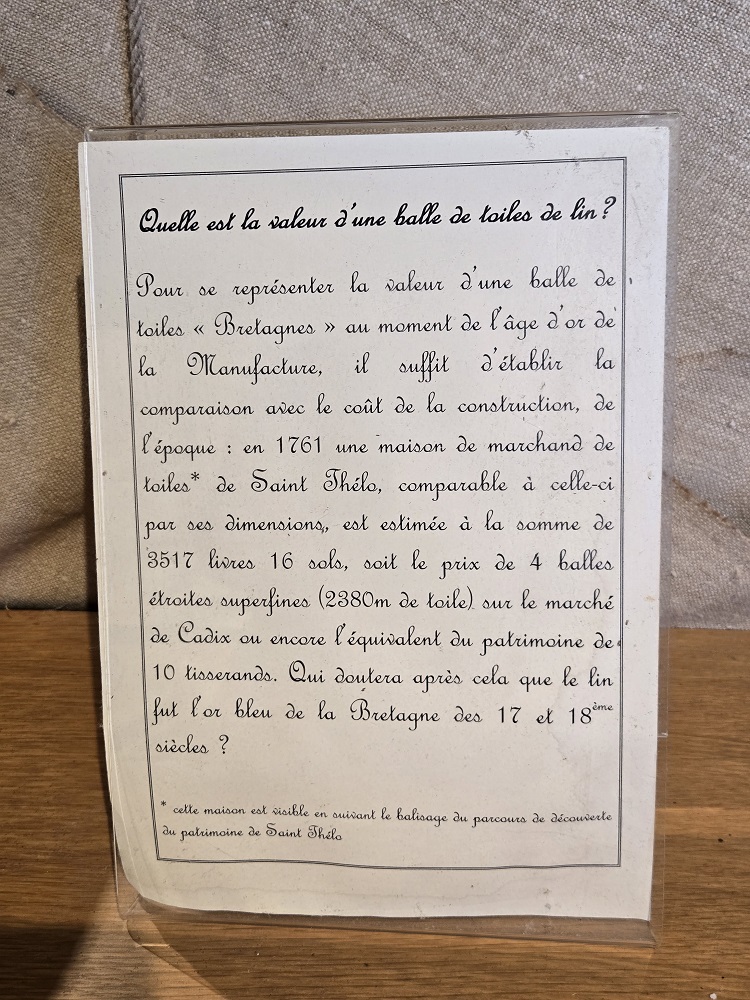 Quelle est la valeur d'une balle de toiles de lin ?
Pour se représenter la valeur d'une balle de
toiles « Bretagnes » au moment de l'âge d'or de
la Manufacture, il suffit d'établir la
comparaison avec le coût de la construction, de
l'époque : en 1761 une maison de marchand de
toiles* de Saint Thélo, comparable à celle-ci
par ses dimensions, est estimée à la somme de
3517 livres 16 sols, soit le prix de 4 balles
étroites superfines (2380m de toile) sur le marché
de Cadix ou encore l'équivalent du patrimoine de
10 tisserands. Qui doutera après cela que le lin
fut l'or bleu de la Bretagne des 17 et 18ème
siècles ?
* cette maison est visible en suivant le balisage du parcours de découverte
du patrimoine de Saint Thélo